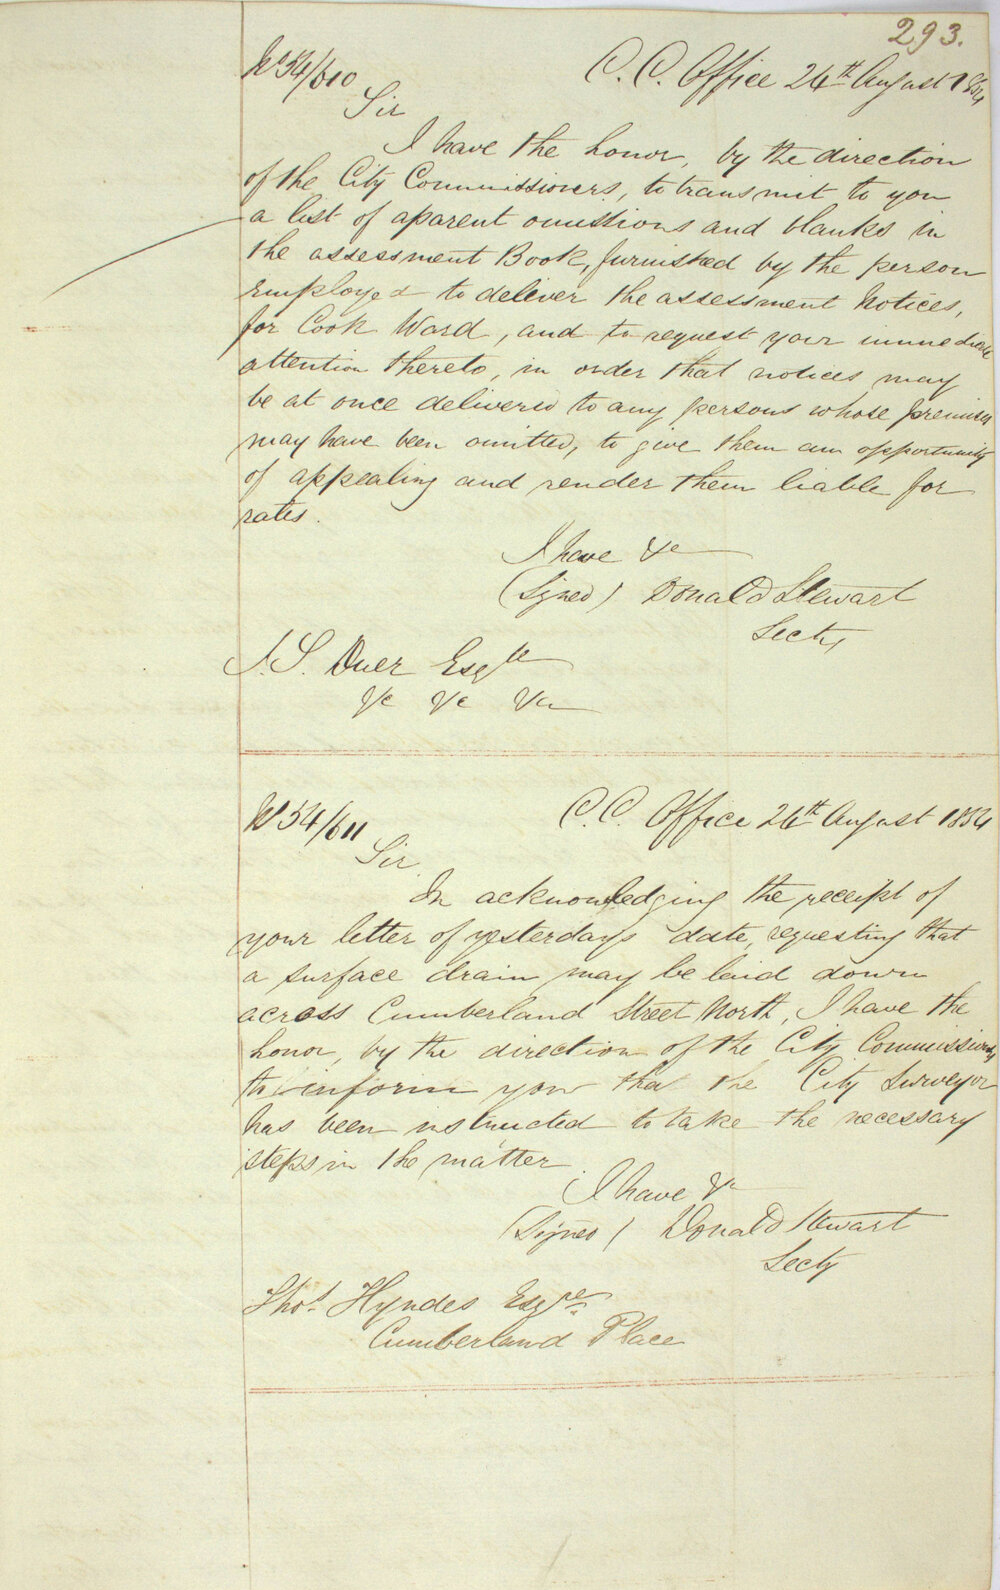 293.
No 54/610
C. C. Office 24th August 1854
Sir
I have the honor, by the direction
of the City Commissioners, to transmit to you
a list of aparent omissions and blanks in
the assessment Book, furnished by the person
Employed to deliver the assessment Notices,
for Cook Ward, and to request your immediate
attention thereto, in order that notices may
be at once delivered to any persons whose premises
may have been omitted, to give them an opportunity
of appealing and render them liable for
rates.
I have &c
(Signed) Donald Stewart
Secty
J. S. Duer Esqre
&c &c &c
No 54/611
C. C. Office 24th August 1854
Sir
In acknowledging the receipt of
your letter of yesterdays date, requesting that
a surface drain may be laid down
across Cumberland Street North, I have the
honor, by the direction of the City Commissioners
to inform you that the City Surveyor
has been instructed to take the necessary
steps in the matter
I have &c
(Signed) Donald Stewart
Secty
Thos. Hyndes Esqre
Cumberland Place